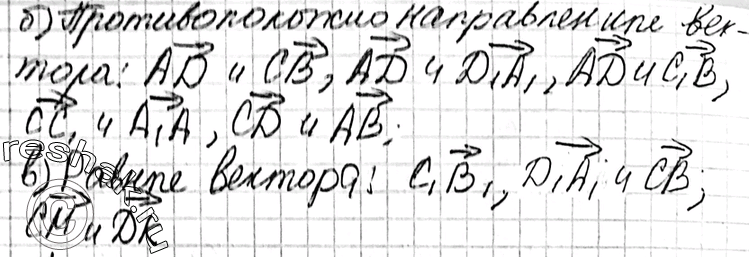 б) Противоположно направленные век-
тора: AD и CB, AD и D₁A₁, AD и C₁B,
CC₁ и A₁A, CD и AB;
в) Равные вектора: C₁B₁, D₁A₁ и CB;
CM и DK